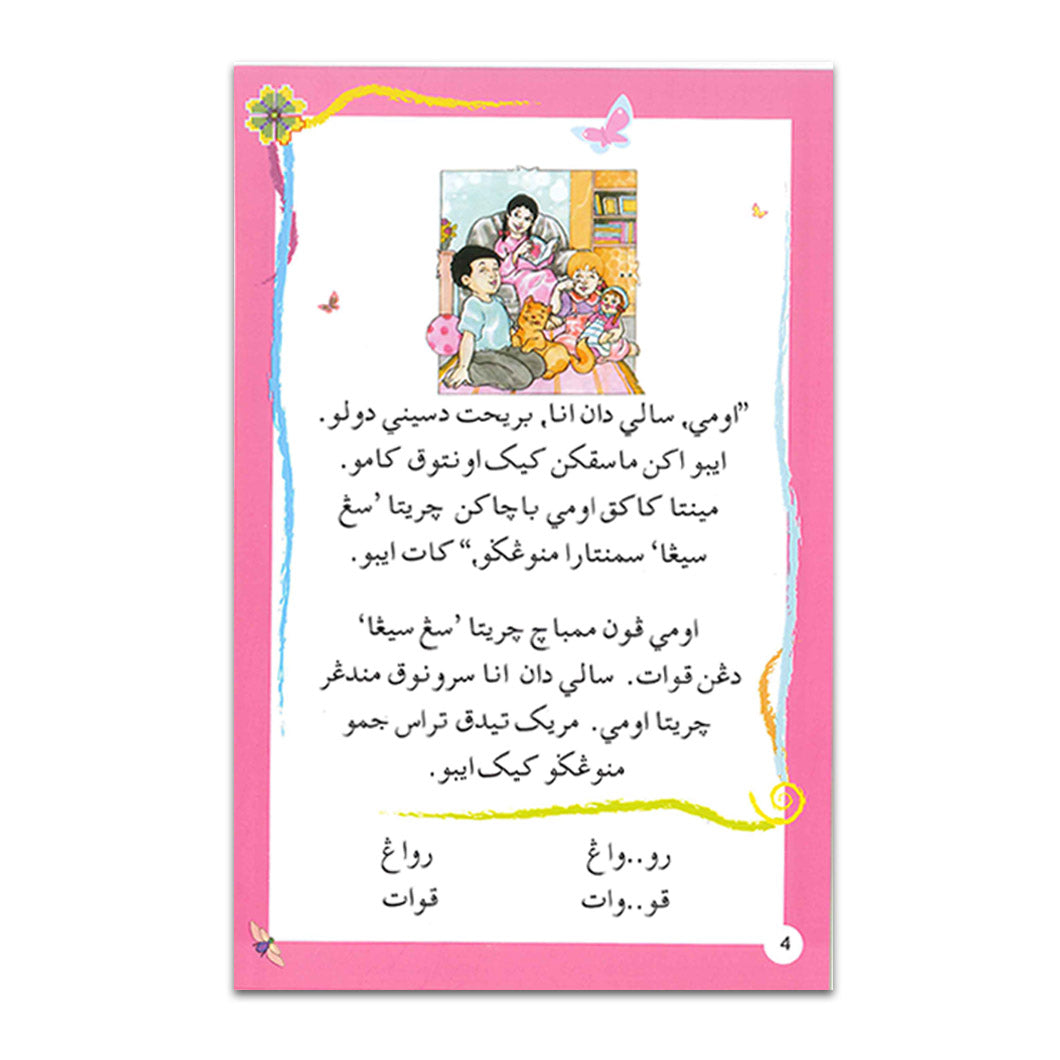 ”اومي, سالي دان انا, بريحت دسيني دولو.
ايبو اکن ماسقکن کيک اونتوق کامو.
مينتا کاکق اومي باچاکن چريتا ’سڠ
سيڠا‘ سمنتارا منوڠݢو,“ کات ايبو.
اومي ڤون ممباچ چريتا ’سڠ سيڠا‘
دڠن قوات. سالي دان انا سرونوق مندڠر
چريتا اومي. مريک تيدق تراس جمو
منوڠݢو کيک ايبو.
رو..واڠ رواڠ
قو..وات قوات
4